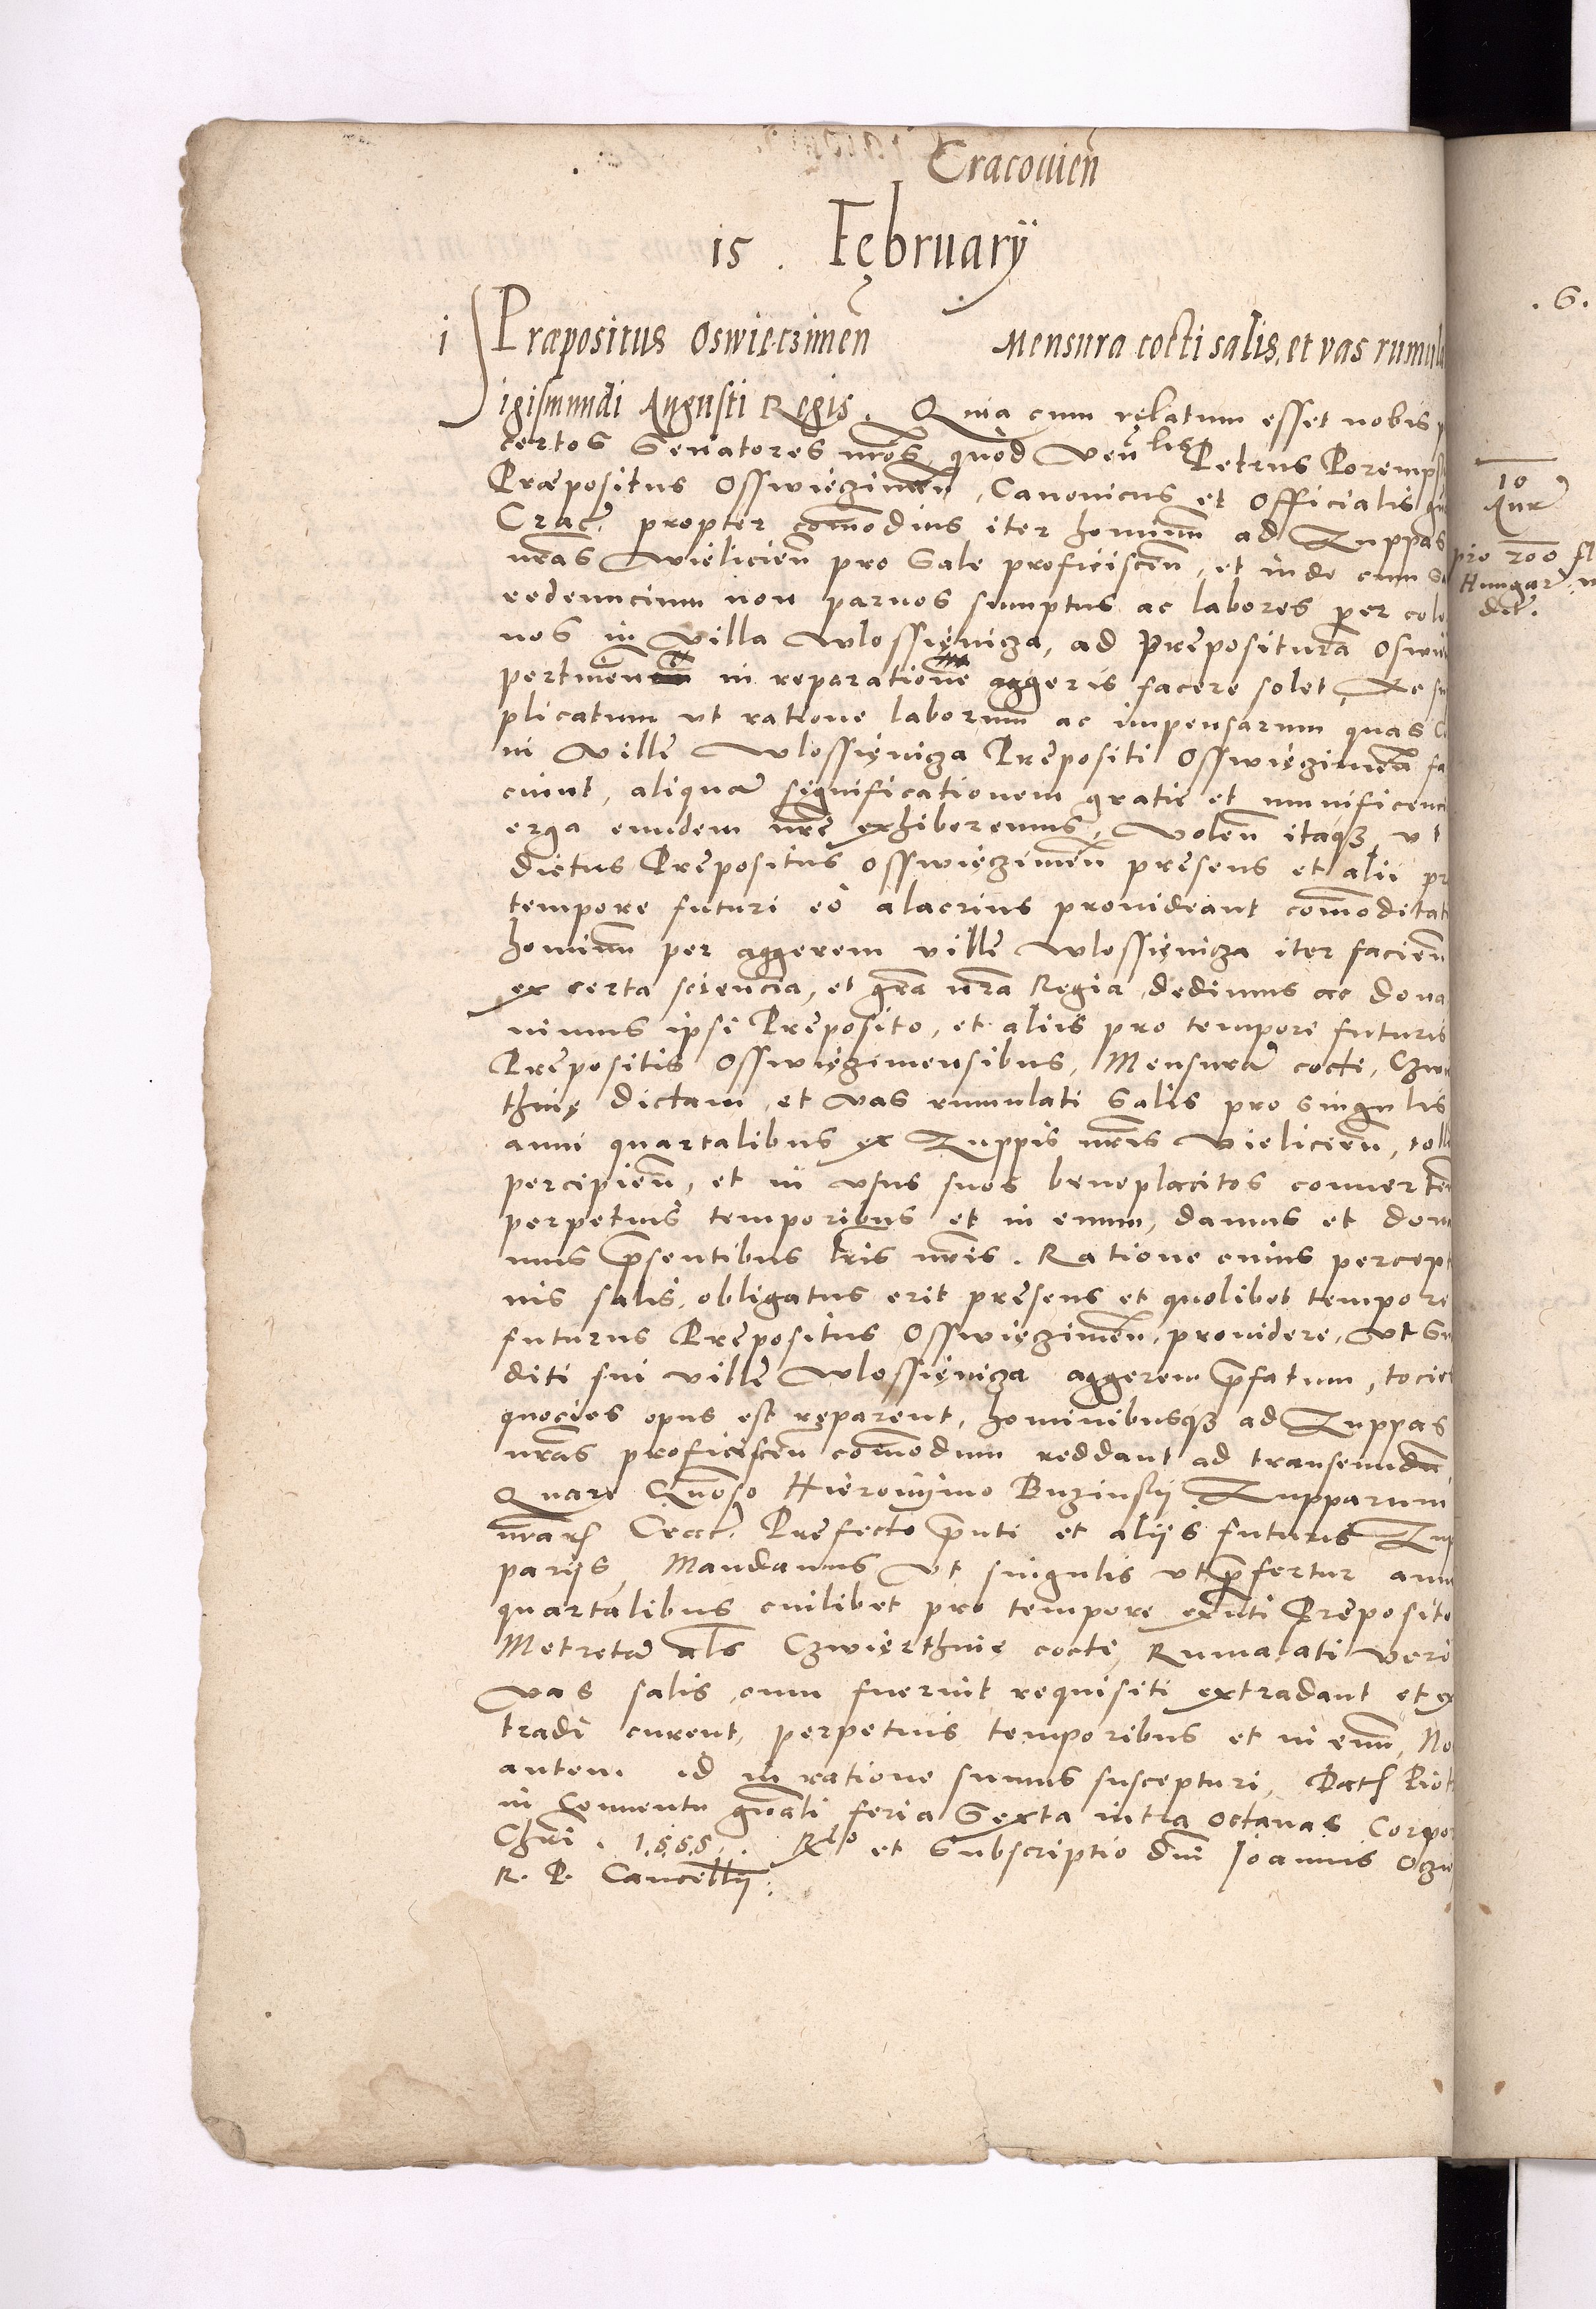 Cracouień
15. Februarÿ
1 Præpositus Oswieczimeń Mensura cocti salis, et vas rumula
Sigismundi Augusti Regis. Quia cum relatum esset nobis p
certos Senatores nr̃os, quòd Veñ lis Petrus Porempsk
Præpositus Osswięzimeñ, Canonicus et Officialis
Crac: propter com̃odius iter hominum ad Zuppas
nr̃as Wielicień pro Sale proficisceñ, et inde cum Sa
redeuncium non paruos sumptus ac labores per colo
nos in Villa Wlossięnicza, ad Prepositura Oswie
pertineñ in reparatione aggeris facere solet, Ac su
plicatum vt ratione laborum ac impensarum quas Co
ni Villę Wlossięnicza Prępositi Osswięzimeñ fa
ciunt, aliquã significationem gratię et munificenci
erga eundem nr̃ę exhiberemus, Voleñ itaq3 vt
dictus Prępositus Osswięzimeñ pręsens et alii pr
tempore futuri eò alacrius prouideant com̃oditat
hominum per aggerem villę Wlossięnicza iter facieñ
ex certa sciencia, et gr̃a nr̃a Regia, dedimus ac dona
uimus ipsi Pręposito, et aliis pro tempore futuris
Prępositis Osswięzimensibus, Mensurã cocti, Czwie
thnię dictam, et vas rumulati Salis pro singulis
anni quartalibus ex Zuppis nr̃is Vieliceñ, toll
percipieñ, et in vsus suos beneplacitos conuerteñ
perpetuis temporibus et in euum, damus et dona
mus p̃sentibus lr̃is nr̃is. Ratione cuius percept
nis salis, obligatus erit pręsens et quolibet tempore
futurus Prępositus Osswięzimeñ, prouidere, vt Su
diti sui villę Wlossięnicza aggerem p̃fatum, tocie
quocies opus est reparent, hominibusq3 ad Zuppas
nr̃as proficisceñ com̃odum reddant ad transeundũ.
Quare Gñoso Hieronimo Buzinskÿ Zupparum
nr̃ar Crac: Pręfecto p̃nti et aliis futuris Zup
parÿs, Mandamus vt singulis vt p̃fertur anni
quartalibus cuilibet pro tempore ex̃nti Pręposito
Metretã als Czwierthnię cocti, Rumulati vero
vas salis, cum fuerint requisiti extradant et ex
tradi curent, perpetuis temporibus et in euũ, No
autem id in ratione sumus suscepturi, Dat Piot
in Conuentu gñali feria Sexta intra octauas Corpor
Chr̃i. 1.5.5.5. Rlo et Subscriptio dñi Joannis Oczie
R. P. Cancellÿ:
. G.
10
Aur
pro 200 fl
Hungar:
dit.